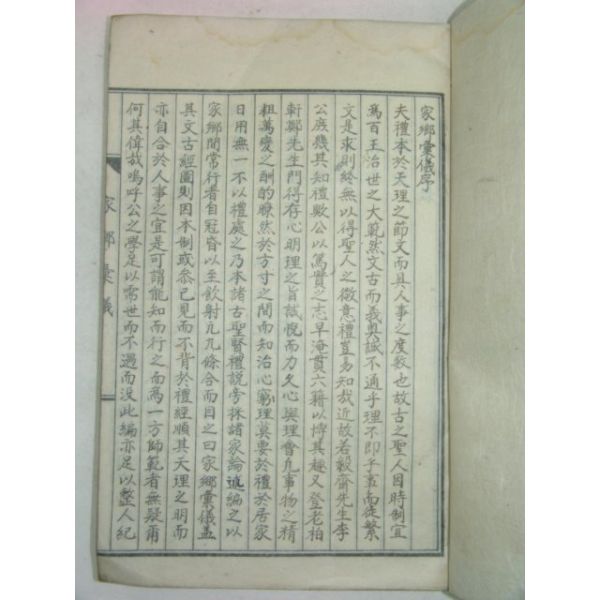 家鄉彙儀序
夫禮本於天理之節文而具人事之度數也故古之聖人因時制宜
爲百王治世之大範然文古而義奧誠不通乎理不卽乎事而徒繁
文是求則終無以得聖人之微意禮豈易知哉近故若毅齋先生李
公庶幾其知禮歟公以篤實之志早淹貫六籍以博其趣又登老柏
軒鄭先生門得存心明理之旨誠悅而力久心與理會凡事物之精
粗萬變之酬酌瞭然於方寸之間而知治心窮理莫要於禮於居家
日用無一不以禮處之乃本諸古聖賢禮說旁採諸家論述編之以
家鄉間常行者自冠昏以至飮射凡九條合而目之曰家鄉彙儀盖
其文古經圖則因本制或叅己見而不背於禮經順其天理之明而
亦自合於人事之宜是可謂能知而行之而爲一方師範者無疑爾
何其偉哉嗚呼公之學足以需世而不遇而沒此編亦足以整人紀
家鄉彙儀